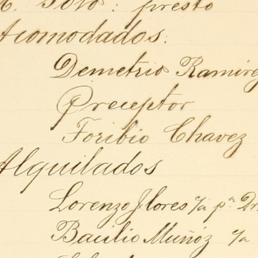 Soto: presto
Acomodados:
Demetrio Ramirez
Preceptor
Toribio Chavez
Alquilados
Lorenzo Flores
Basilio Muñóz